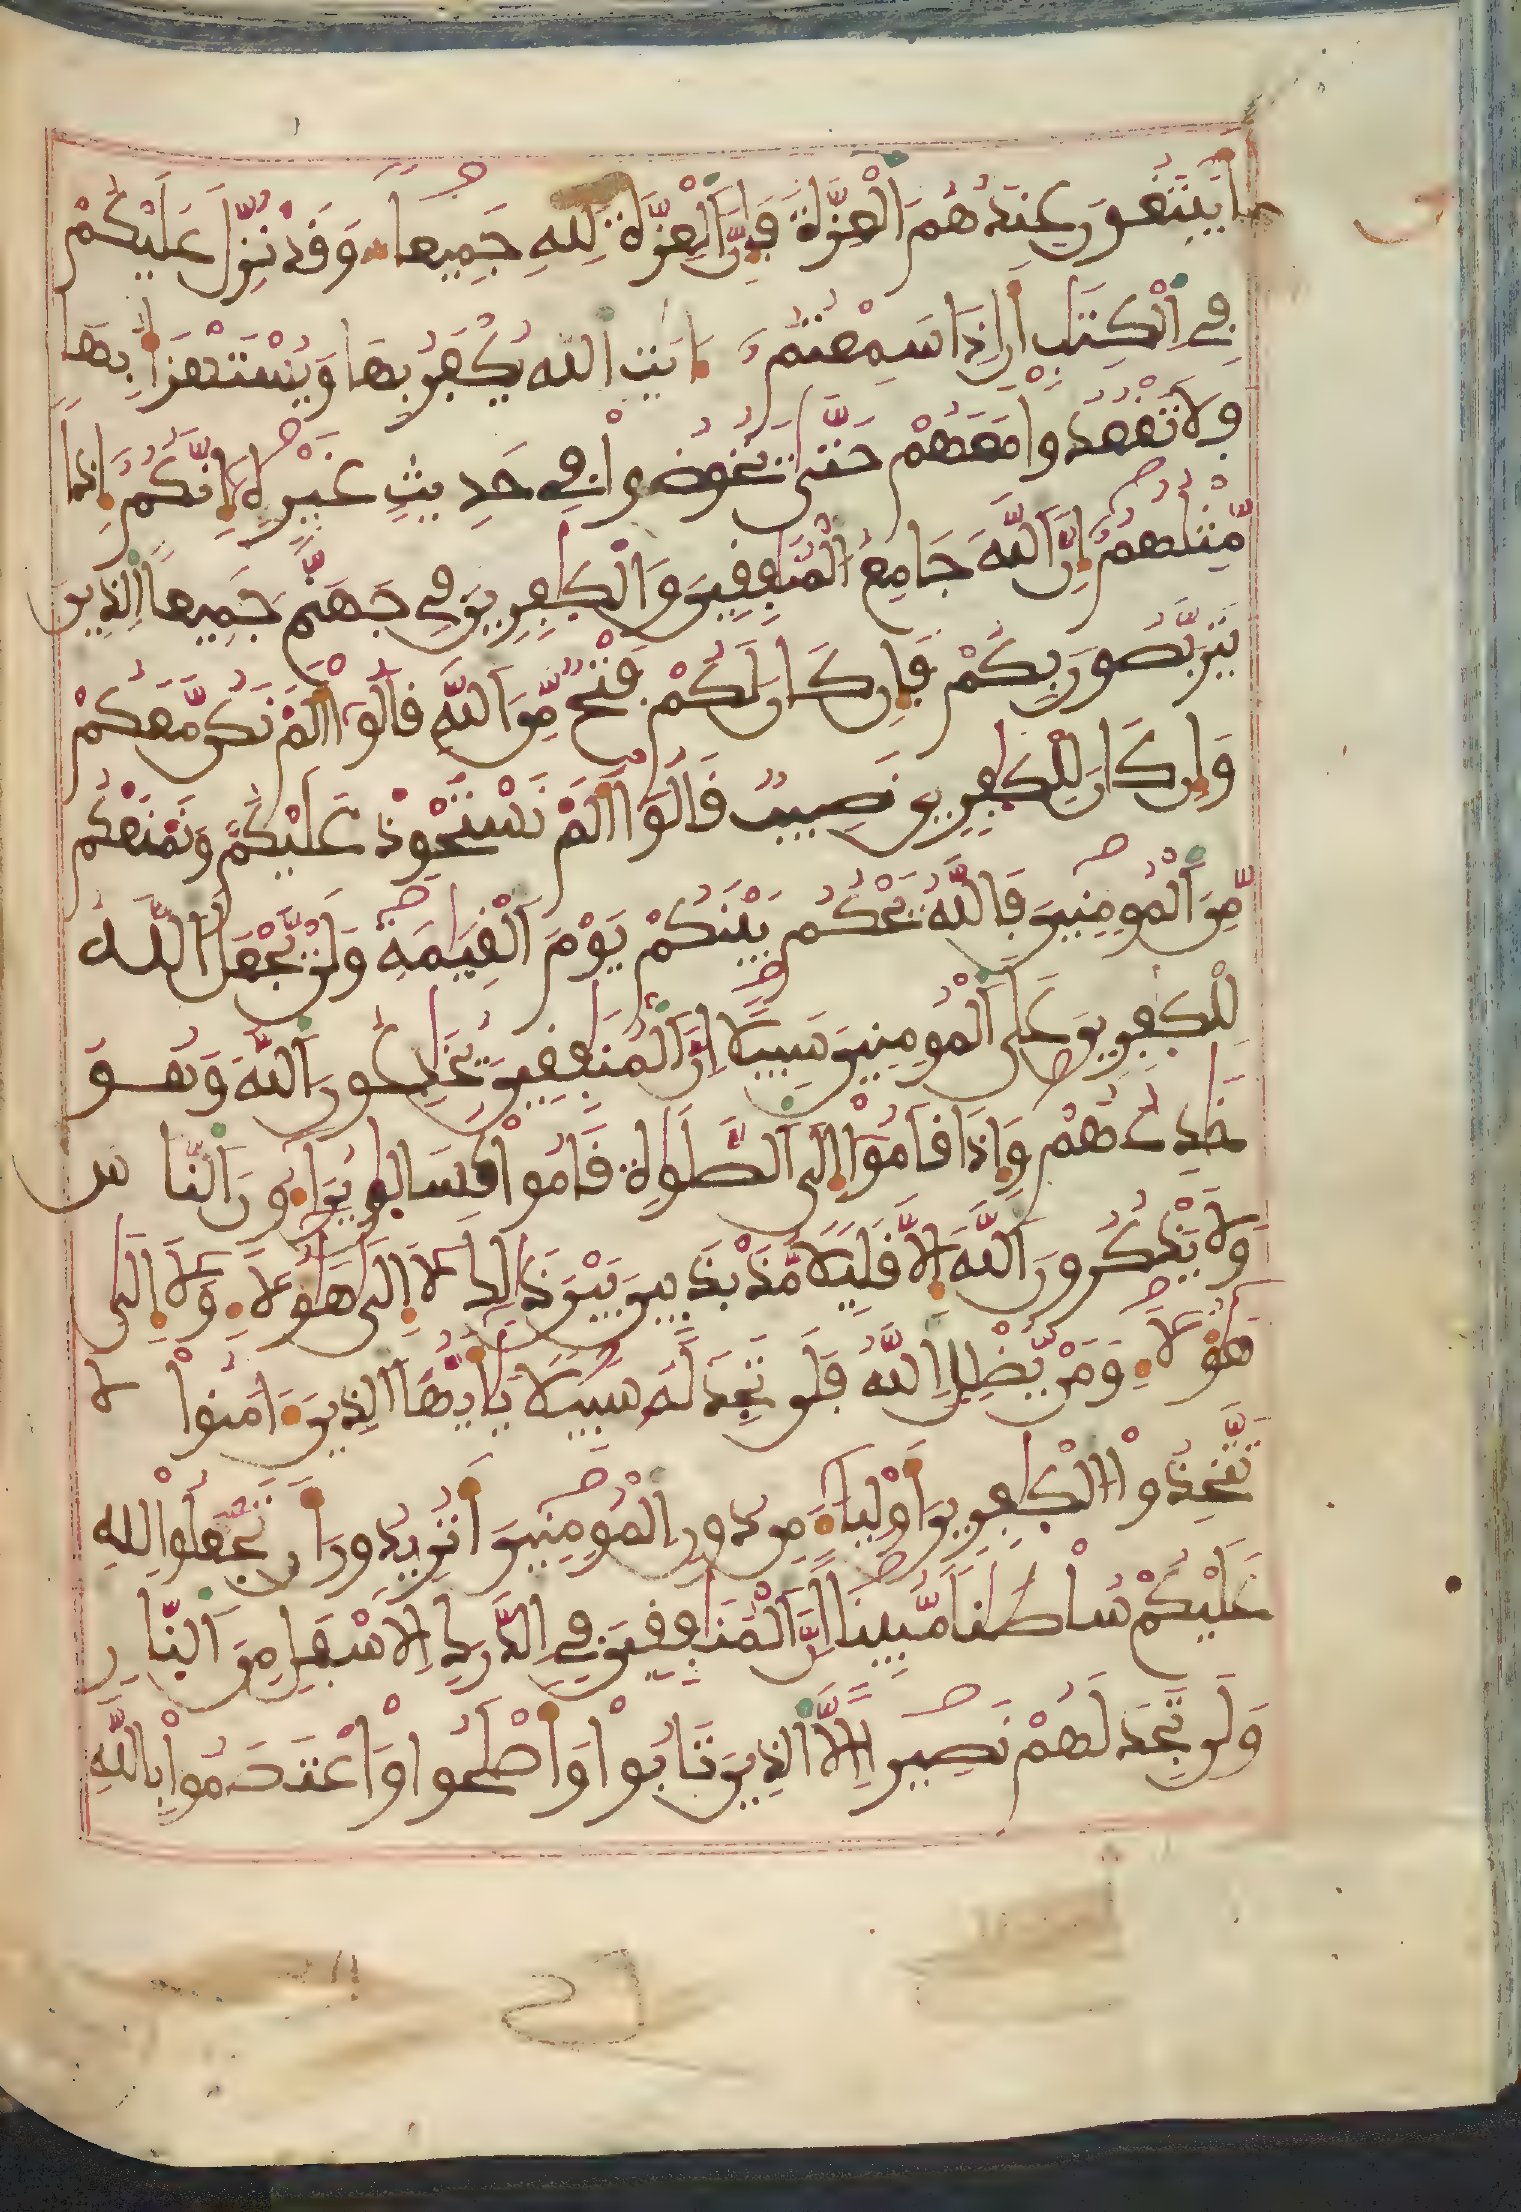 أَيَبْتَغُونَ عِندَهُمُ اَ۬لْعِزَّةَ فَإِنَّ اَ۬لْعِزَّةَ لِلهِ جَمِيعاً وَقَدْ نُزِّلَ عَلَيْكُمْ
فِي اِ۬لْكِتَٰبِ أَنِ اِذَا سَمِعْتُمُۥٓ ءَايَٰتِ اِ۬للَّهِ يُكْفَرُ بِهَا وَيُسْتَهْزَأُ بِهَا
فَلَا تَقْعُدُواْ مَعَهُمْ حَتَّىٰ يَخُوضُواْ فِي حَدِيثٍ غَيْرِهِۦٓ إِنَّكُمُۥٓ إِذاً
مِّثْلُهُمُۥٓ إِنَّ اَ۬للَّهَ جَامِعُ اُ۬لْمُنَٰفِقِينَ وَالْكَٰفِرِينَ فِي جَهَنَّمَ جَمِيعاً اِ۬لذِينَ
يَتَرَبَّصُونَ بِكُمْ فَإِن كَانَ لَكُمْ فَتْحٌ مِّنَ اَ۬للَّهِ قَالُوٓاْ أَلَمْ نَكُن مَّعَكُمْ
وَإِن كَانَ لِلْكَٰفِرِينَ نَصِيبٌ قَالُوٓاْ أَلَمْ نَسْتَحْوِذْ عَلَيْكُمْ وَنَمْنَعْكُم
مِّنَ اَ۬لْمُومِنِينَ فَاللَّهُ يَحْكُمُ بَيْنَكُمْ يَوْمَ اَ۬لْقِيَٰمَةِ وَلَنْ يَّجْعَلَ اَ۬للَّهُ
لِلْكَٰفِرِينَ عَلَى اَ۬لْمُومِنِينَ سَبِيلًا اِنَّ اَ۬لْمُنَٰفِقِينَ يُخَٰدِعُونَ اَ۬للَّهَ وَهُوَ
خَٰدِعُهُمْ وَإِذَا قَامُوٓاْ إِلَى اَ۬لصَّلَوٰةِ قَامُواْ كُسَالَىٰ يُرَآءُونَ اَ۬لنَّاسَ
وَلَا يَذْكُرُونَ اَ۬للَّهَ إِلَّا قَلِيلًا مُّذَبْذَبِينَ بَيْنَ ذَٰلِكَ لَآ إِلَىٰ هَٰٓؤُلَآءِ وَلَآ إِلَىٰ
هَٰٓؤُلَآءِ وَمَنْ يُّضْلِلِ اِ۬للَّهُ فَلَن تَجِدَ لَهُۥ سَبِيلًا يَٰٓأَيُّهَا اَ۬لذِينَ ءَامَنُواْ لَا
تَتَّخِذُواْ اُ۬لْكَٰفِرِينَ أَوْلِيَآءَ مِن دُونِ اِ۬لْمُومِنِينَ أَتُرِيدُونَ أَن تَجْعَلُواْ لِلهِ
عَلَيْكُمْ سُلْطَٰناً مُّبِيناً اِنَّ اَ۬لْمُنَٰفِقِينَ فِي اِ۬لدَّرَكِ اِ۬لَاسْفَلِ مِنَ اَ۬لنَّارِ
وَلَن تَجِدَ لَهُمْ نَصِيراً اِلَّا اَ۬لذِينَ تَابُواْ وَأَصْلَحُواْ وَاعْتَصَمُواْ بِاللَّهِ